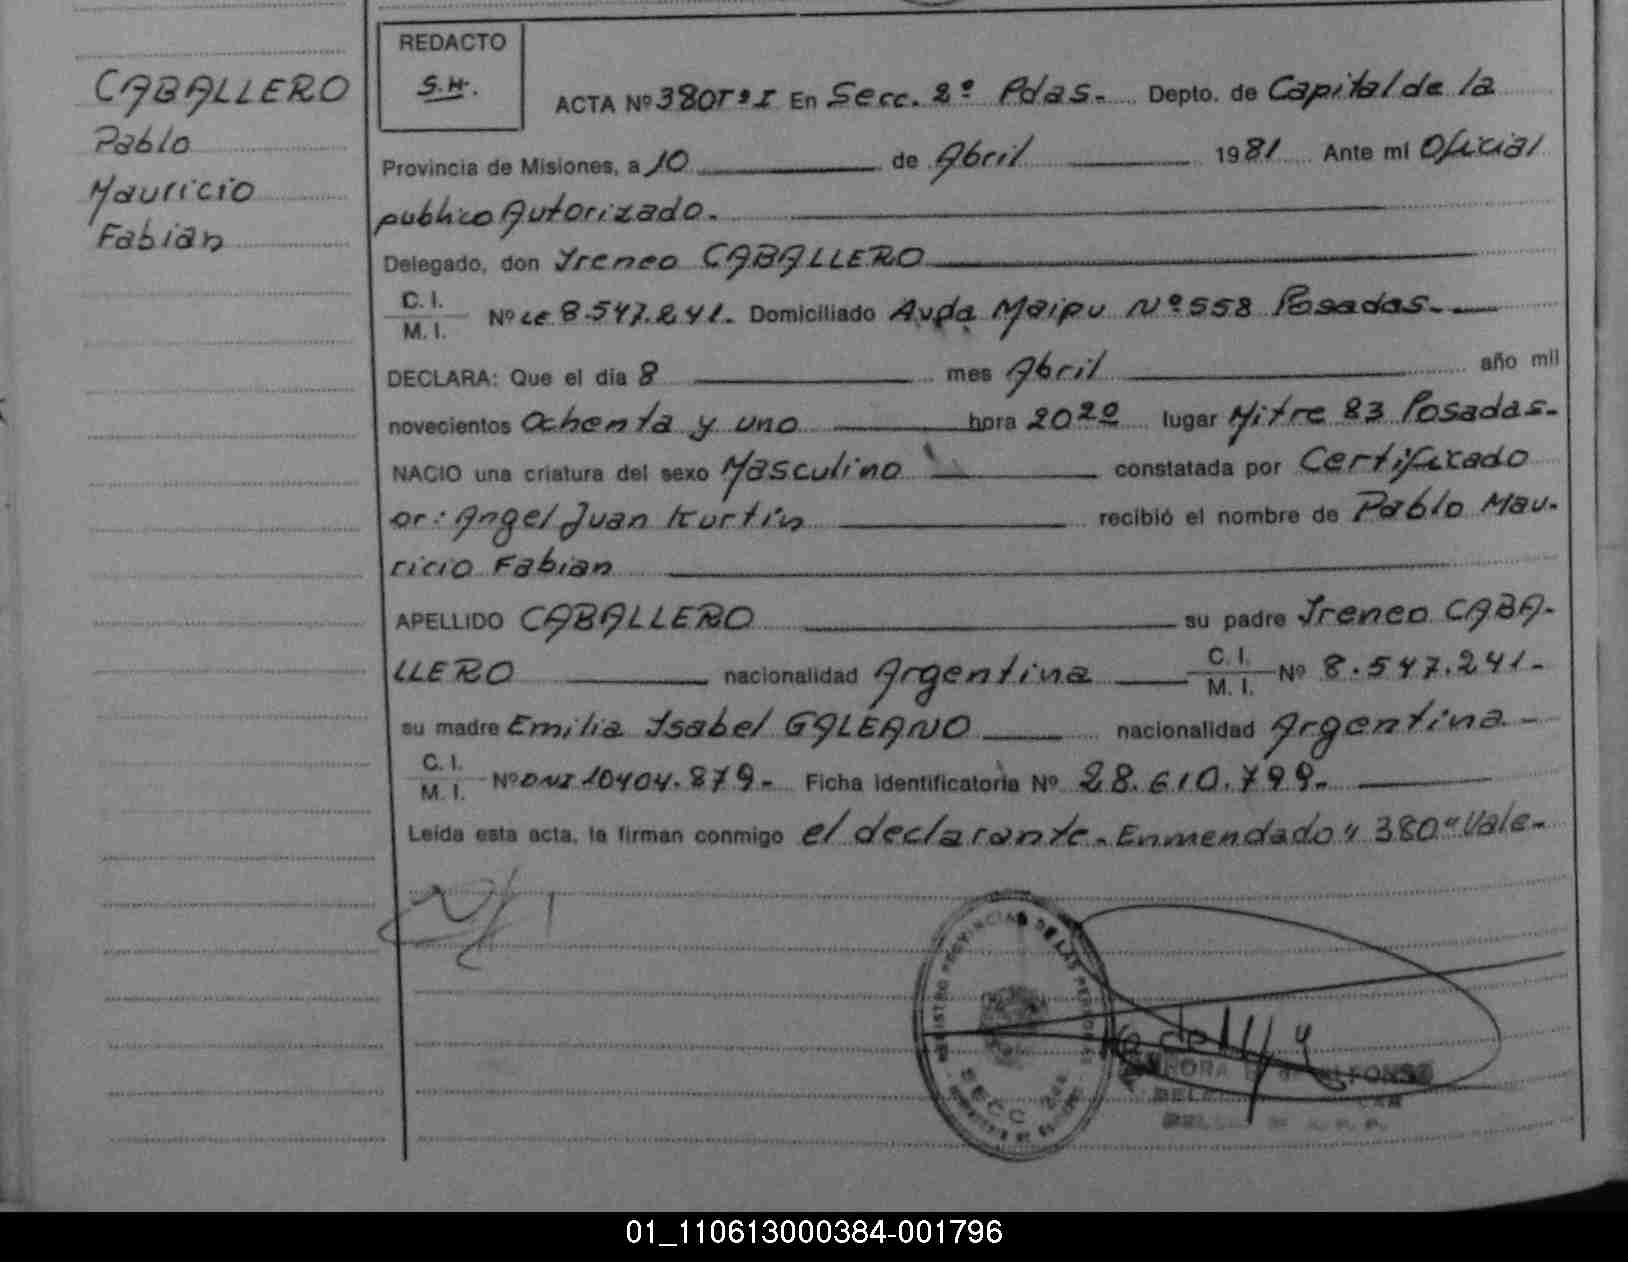 CABALLERO
Pablo
Mauricio
Fabian
REDACTO
S.H.
ACTA Nº 380 Tº I En Secc. 2º Pdas. Depto. de Capital de la
Provincia de Misiones, a 10 de Abril 1981 Ante mi Oficial
publico Autorizado.
Delegado, don Ireneo CABALLERO
C. I.
M. I. Nº LE 8.547.241. Domiciliado Avda Maipu Nº 558 Posadas.
DECLARA: Que el dia 8 mes Abril año mil
novecientos Ochenta y uno hora 20 20 lugar Mitre 83 Posadas.
NACIO una criatura del sexo Masculino constatada por Certificado
Dr: Angel Juan Kurtin recibió el nombre de Pablo Mau-
ricio Fabian
APELLIDO CABALLERO su padre Ireneo CABA-
LLERO nacionalidad Argentina C. I. M. I. Nº 8.547.241.
su madre Emilia Isabel GALEANO nacionalidad Argentina
C. I.
M. I. Nº DNI 10404.879. Ficha identificatoria Nº 28.610.799.
Leída esta acta, la firman conmigo el declarante. Enmendado "380" Vale.
REGISTRO PROVINCIAL DE LAS PERSONAS
SECC. 2da
01_110613000384-001796